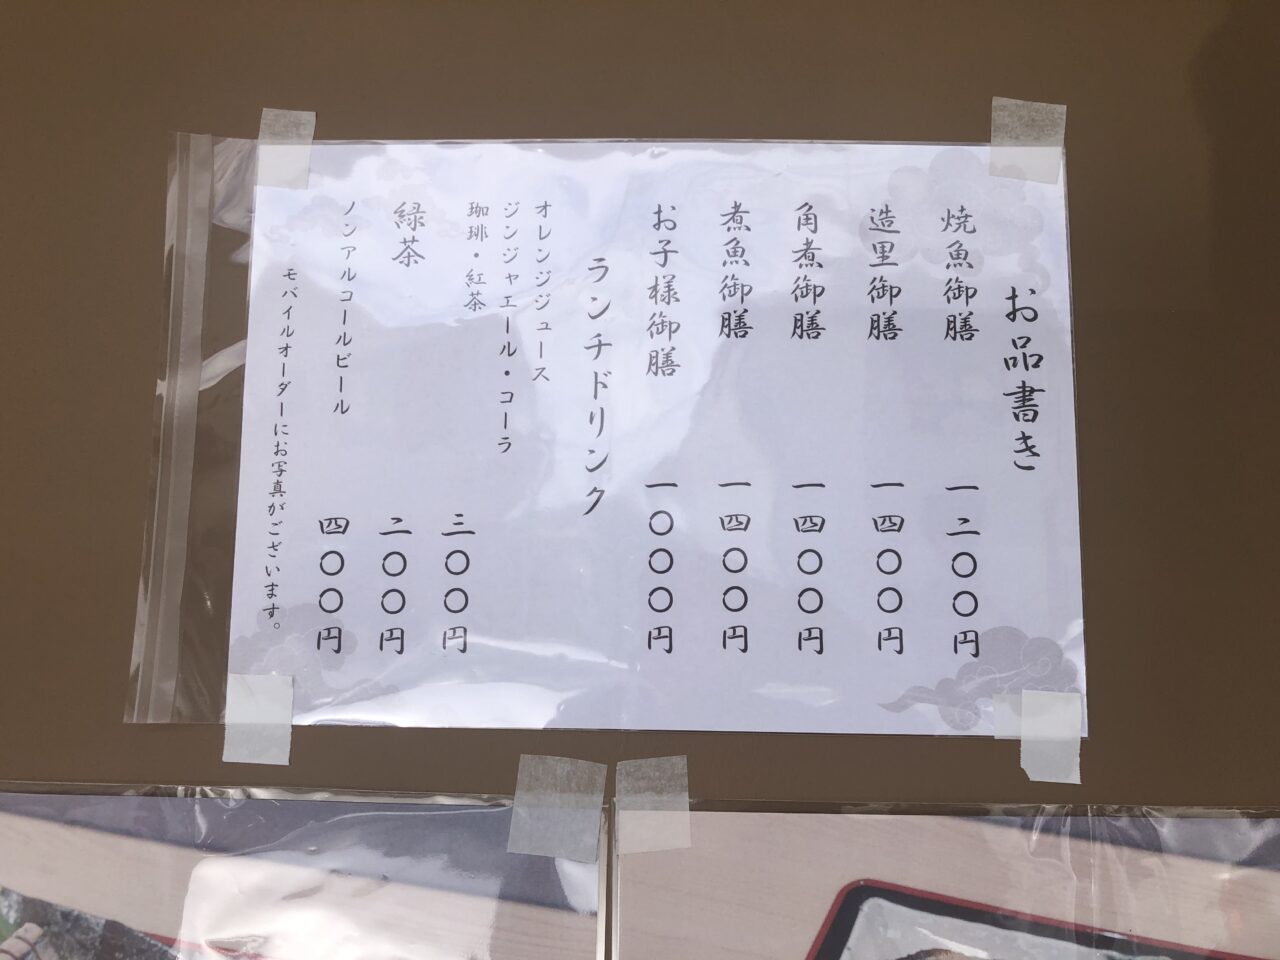 お品書き
焼魚御膳 一二〇〇円
造里御膳 一四〇〇円
角煮御膳 一四〇〇円
煮魚御膳 一四〇〇円
お子様御膳 一〇〇〇円
ランチドリンク
オレンジジュース
ジンジャエール・コーラ
珈琲・紅茶 三〇〇円
緑茶 二〇〇円
ノンアルコールビール 四〇〇円
モバイルオーダーにお写真がございます。